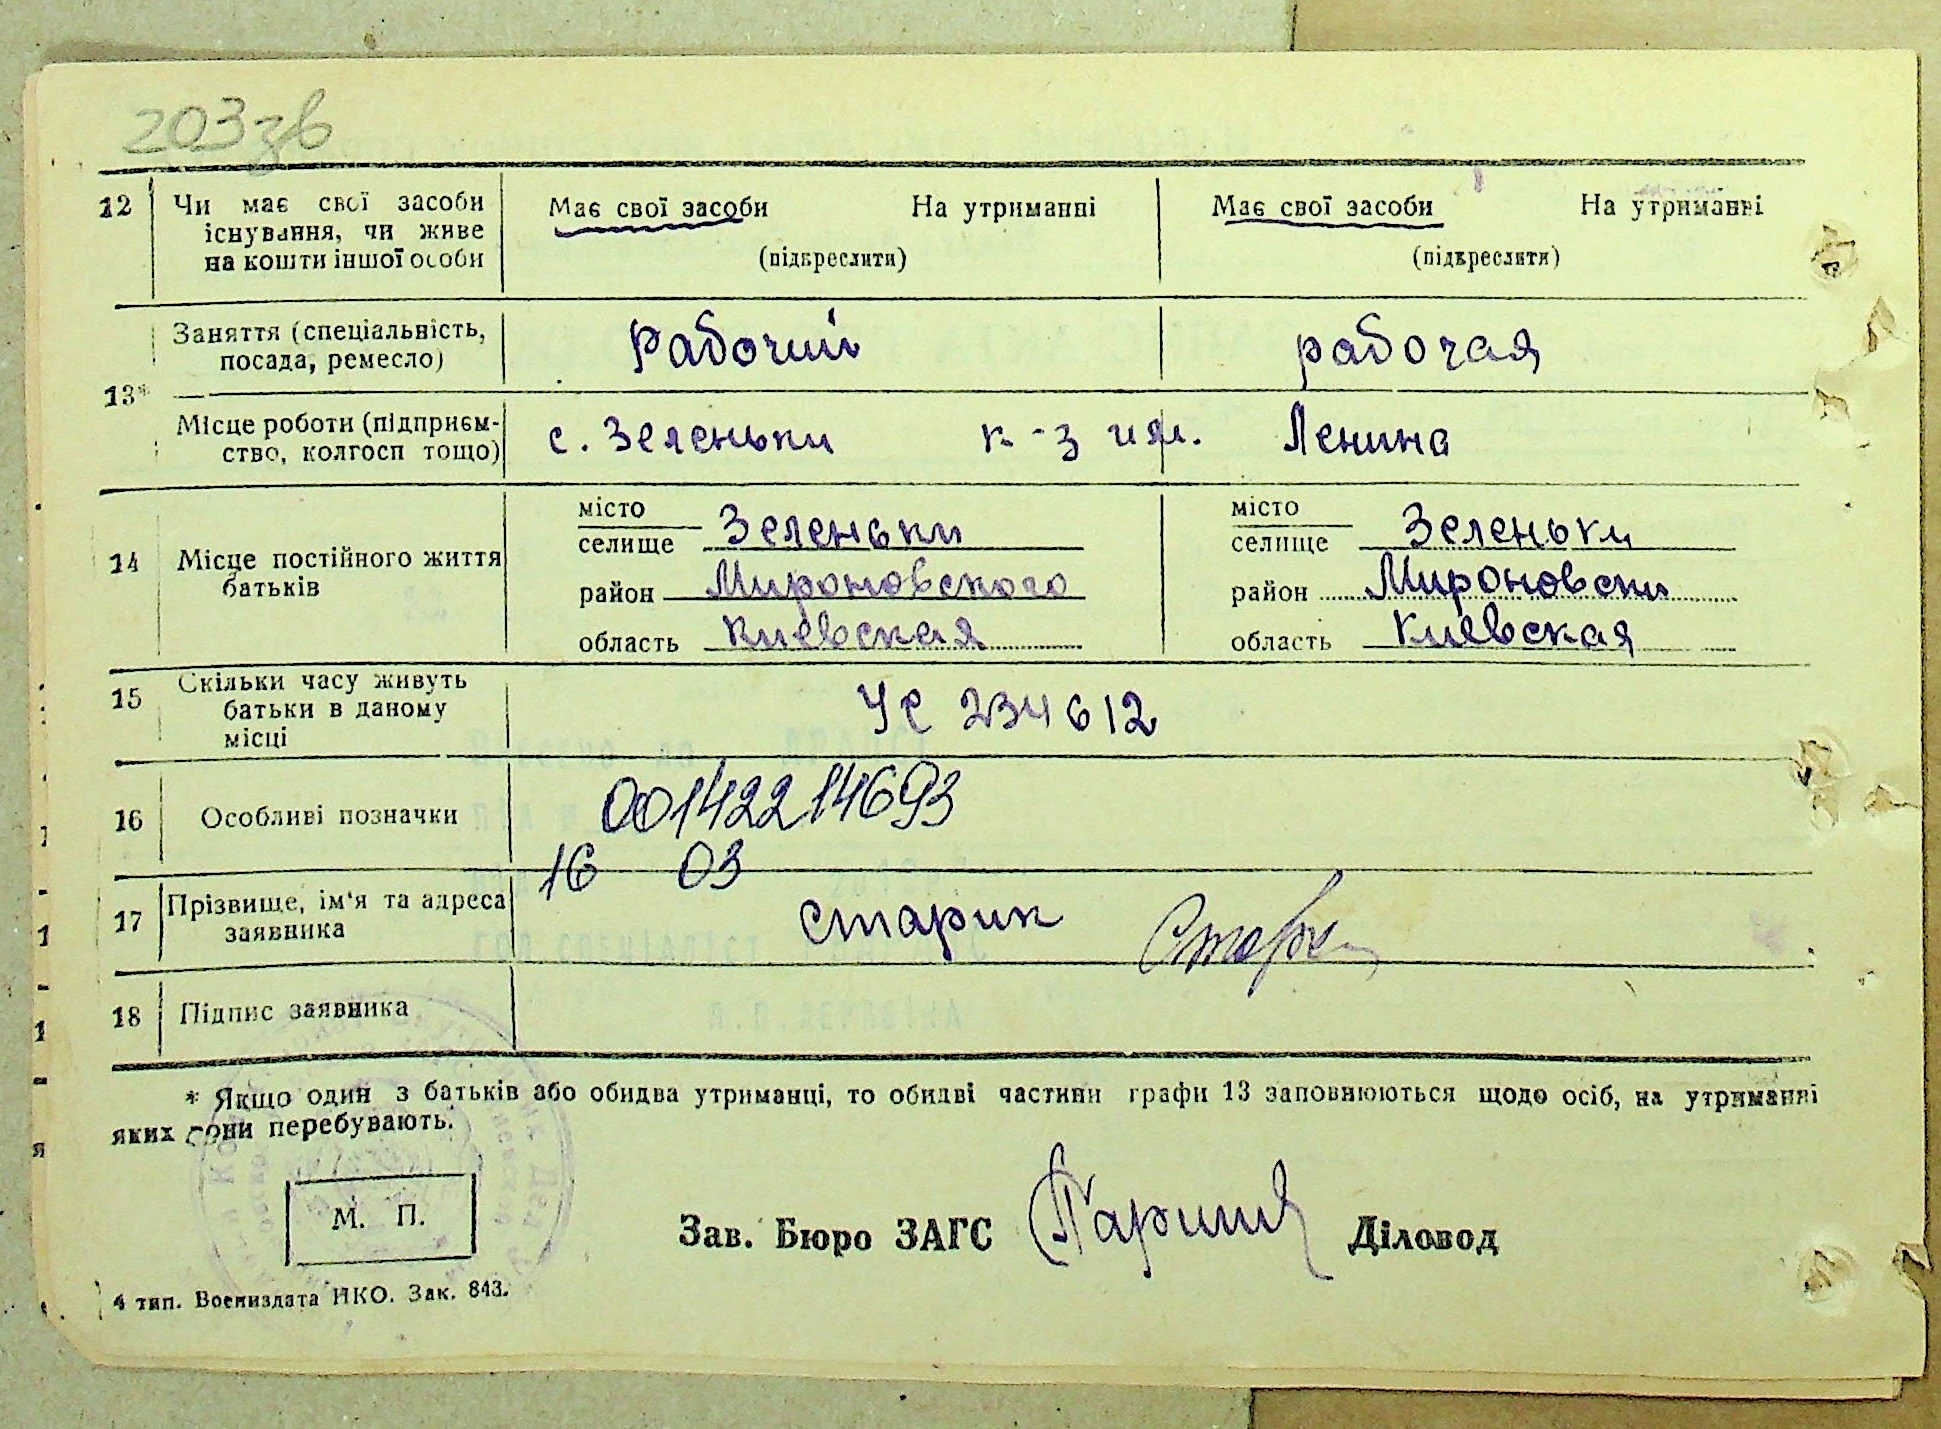 203зв
12 Чи має свої засоби існування, чи живе на кошти іншої особи
Має свої засоби На утриманні Має свої засоби На утриманні
(підкреслити) (підкреслити)
13* Заняття (спеціальність, посада, ремесло) Рабочий рабочая
Місце роботи (підприєм-
ство, колгосп тощо) с. Зеленьки к-з им. Ленина
14 Місце постійного життя батьків
місто
селище Зеленьки
район Мироновского
область Киевская
місто
селище Зеленьки
район Мироновски
область Киевская
15 Скільки часу живуть батьки в даному місці УС 234612
16 Особливі позначки 00142214693
16 03
17 Прізвище, ім'я та адреса заявника Старик
18 Підпис заявника
* Якщо один з батьків або обидва утриманці, то обидві частини графи 13 заповнюються щодо осіб, на утриманні
яких вони перебувають.
М. П.
Зав. Бюро ЗАГС Діловод
4 тип. Воениздата НКО. Зак. 843.